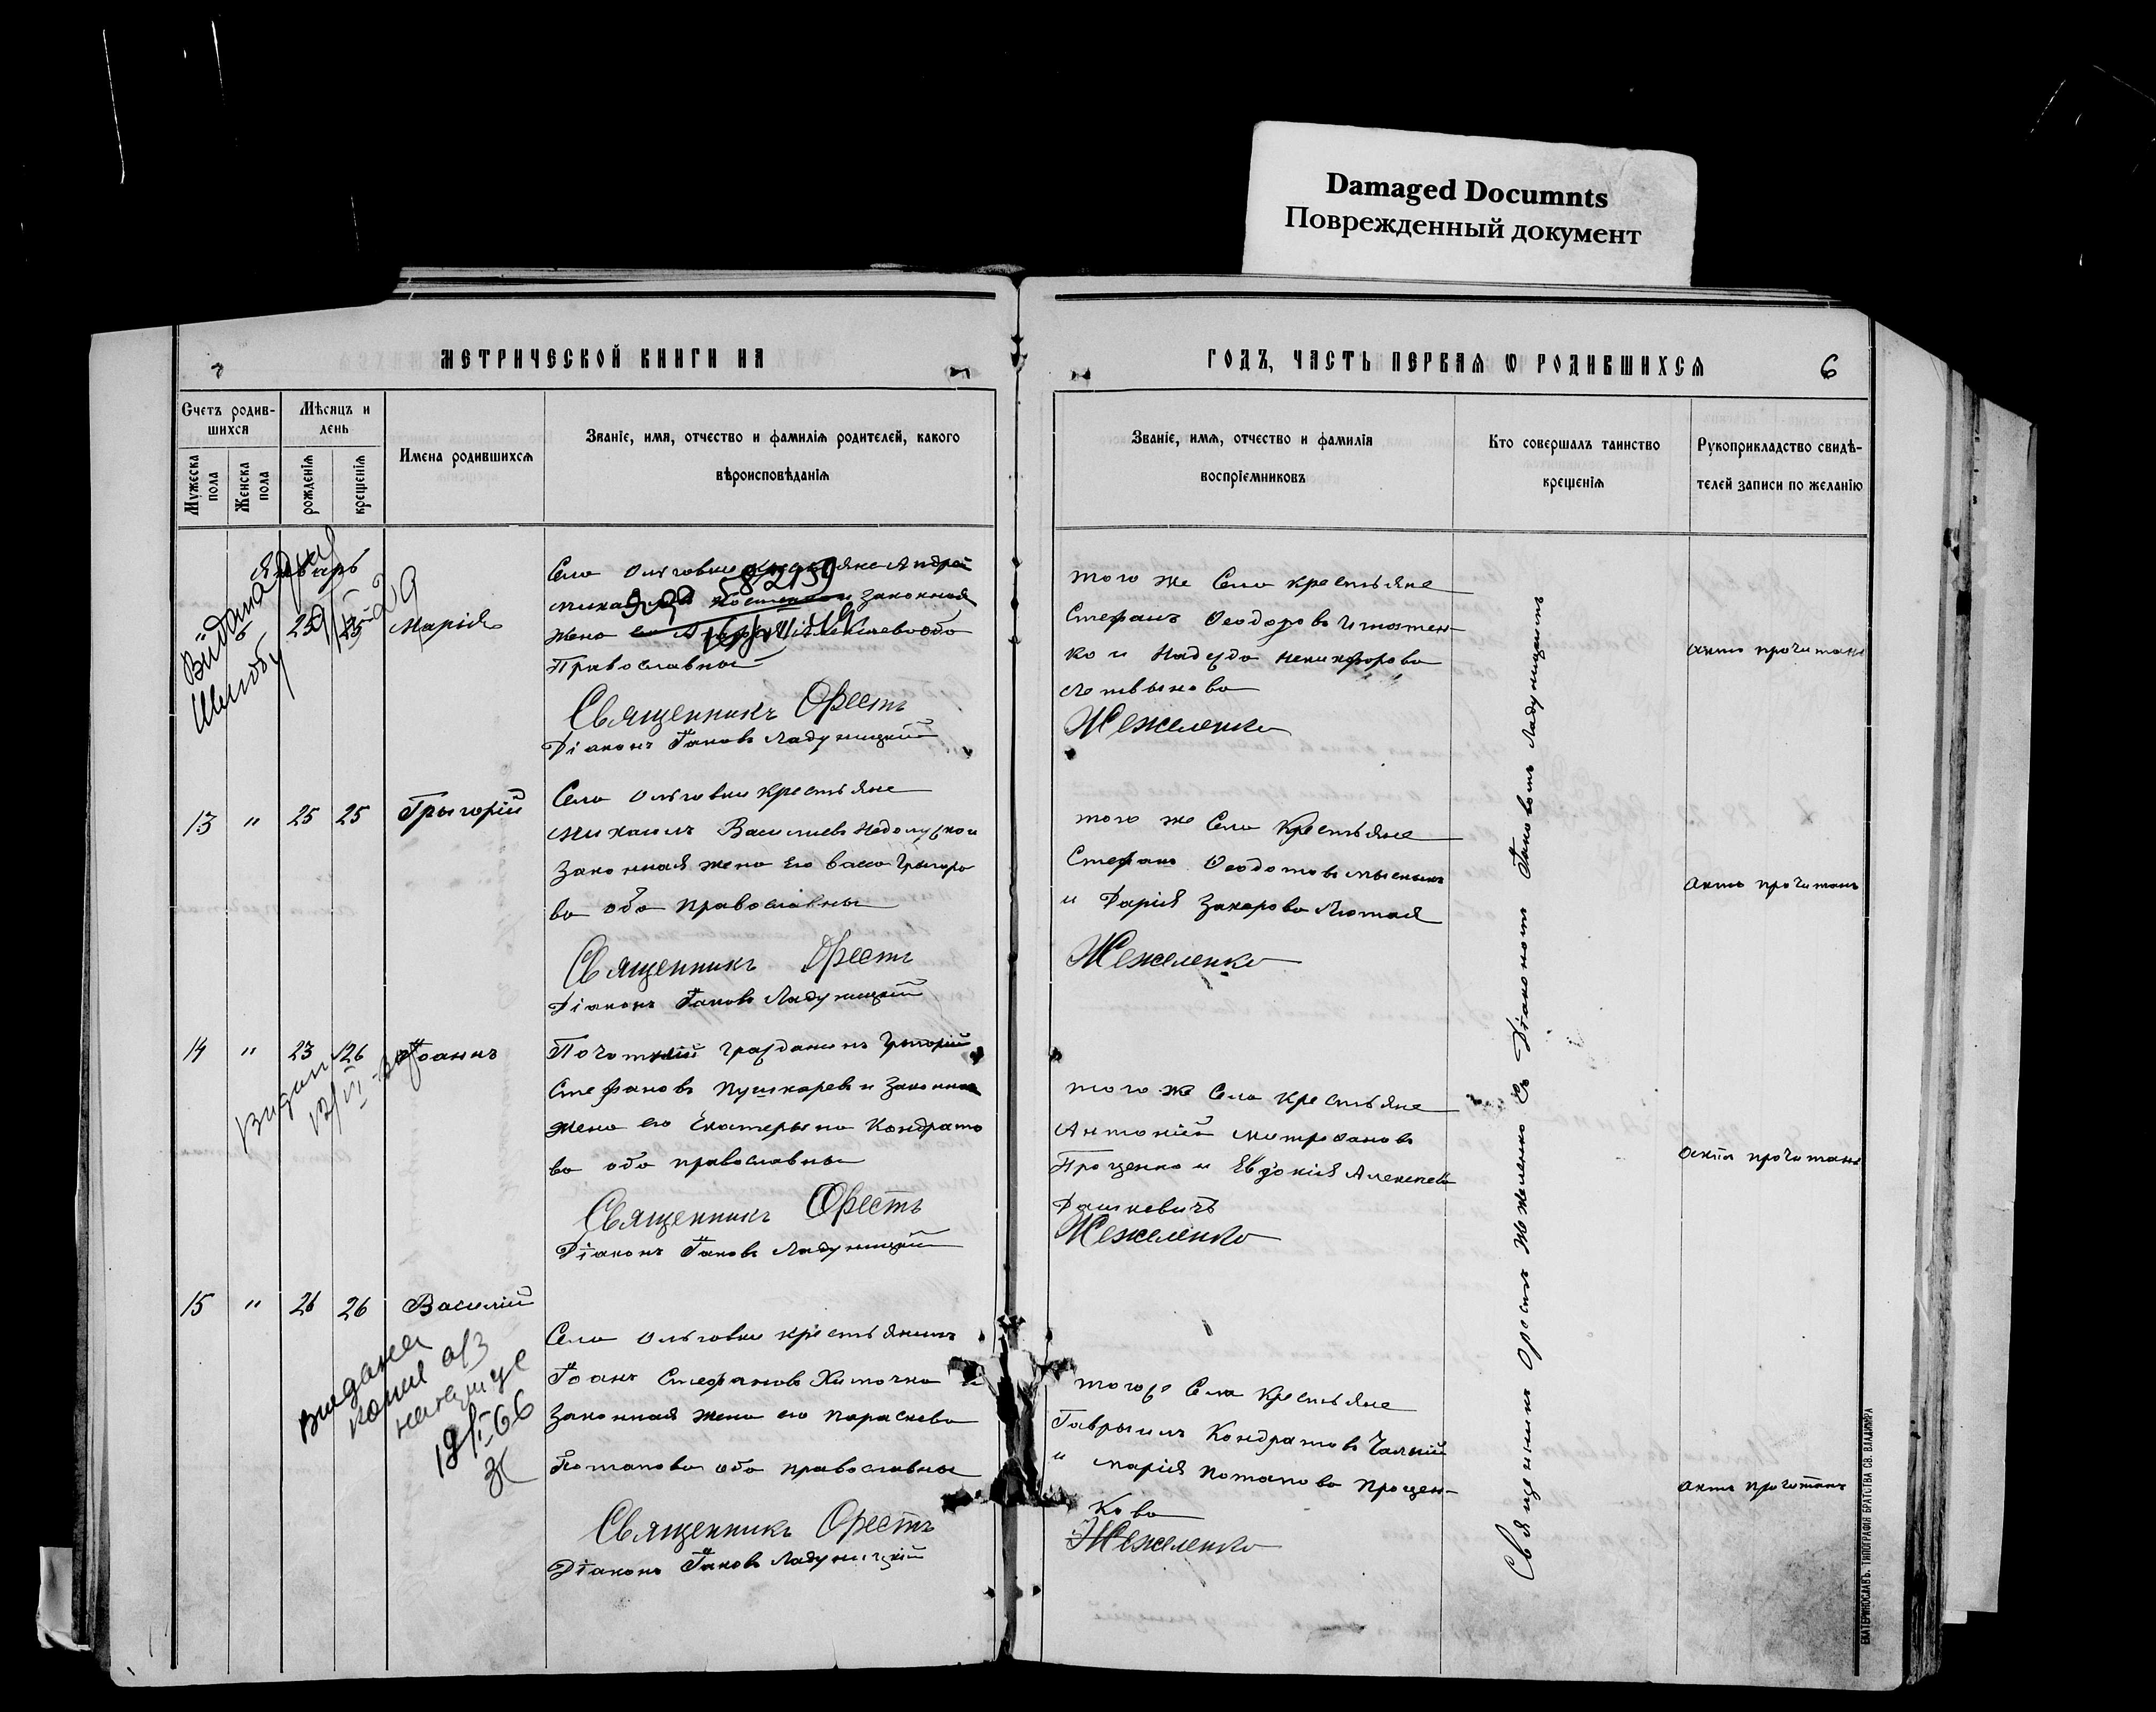 Damaged Documnts
Поврежденный документ
МЕТРИЧЕСКОЙ КНИГИ НА
ГОДЪ, ЧАСТЬ ПЕРВАЯ Ѡ РОДИВШИХСЯ
6
Счетъ родив-
шихся
Мѣсяцъ и
день
Мужеска
пола
Женска
пола
рожденія
крещенія
Имена родившихся
Званіе, имя, отчество и фамилія родителей, какого
вѣроисповѣданія
Званіе, имя, отчество и фамилія
воспріемниковъ
Кто совершалъ таинство
крещенія
Рукоприкладство свидѣ-
телей записи по желанію
Январь
25 25 Марія
Села Ольговки Андрей
законная
жена
Православны
Священникъ Орестъ
Діаконъ Іаковъ Ладуницкій
того же Села крестьяне
Стефанъ Ѳеодоровъ Игнатен-
ко и
Жежеленко
актъ прочитанъ
13 " 25 25 Грыгорій
Села Ольговки крестьяне
Михаилъ Василиевъ
Законная жена Его Васса Грыгоро
ва оба православны
Священникъ Орестъ
Діаконъ Іаковъ Ладуницкій
того же Села Крестьяне
Стефанъ Ѳеодотовъ
и Дарія Захарова Лютая
Жежеленко
актъ прочитанъ
14 " 23 26 Іоаннъ
Почотній гражданинъ Грыгорій
Стефановъ Пушкаревъ и Законная
жена его Екатерына Кондрато
ва оба православны
Священникъ Орестъ
Діаконъ Іаковъ Ладуницкій
того же Села крестьяне
Антоній Митрофановъ
Проценко и Евдокія Алексѣева
Дашкевичъ
Жежеленко
актъ прочитанъ
15 " 26 26 Василій
Села Ольговки крестьянинъ
Іоанъ Стефановъ Хиточка и
Законная жена его Параскева
Потапова оба православны
Священникъ Орестъ
Діаконъ Іаковъ Ладуницкій
Села крестьяне
Гаврыилъ Кондратовъ Чалый
и Марія Потапова Процен-
кова
Жежеленко
актъ прочитанъ
Священникъ Орестъ Жежеленко Съ Діакономъ Іаковомъ Ладуницкимъ
ЕКАТЕРИНОСЛАВЪ. ТИПОГРАФІЯ БРАТСТВА СВ. ВЛАДИМІРА